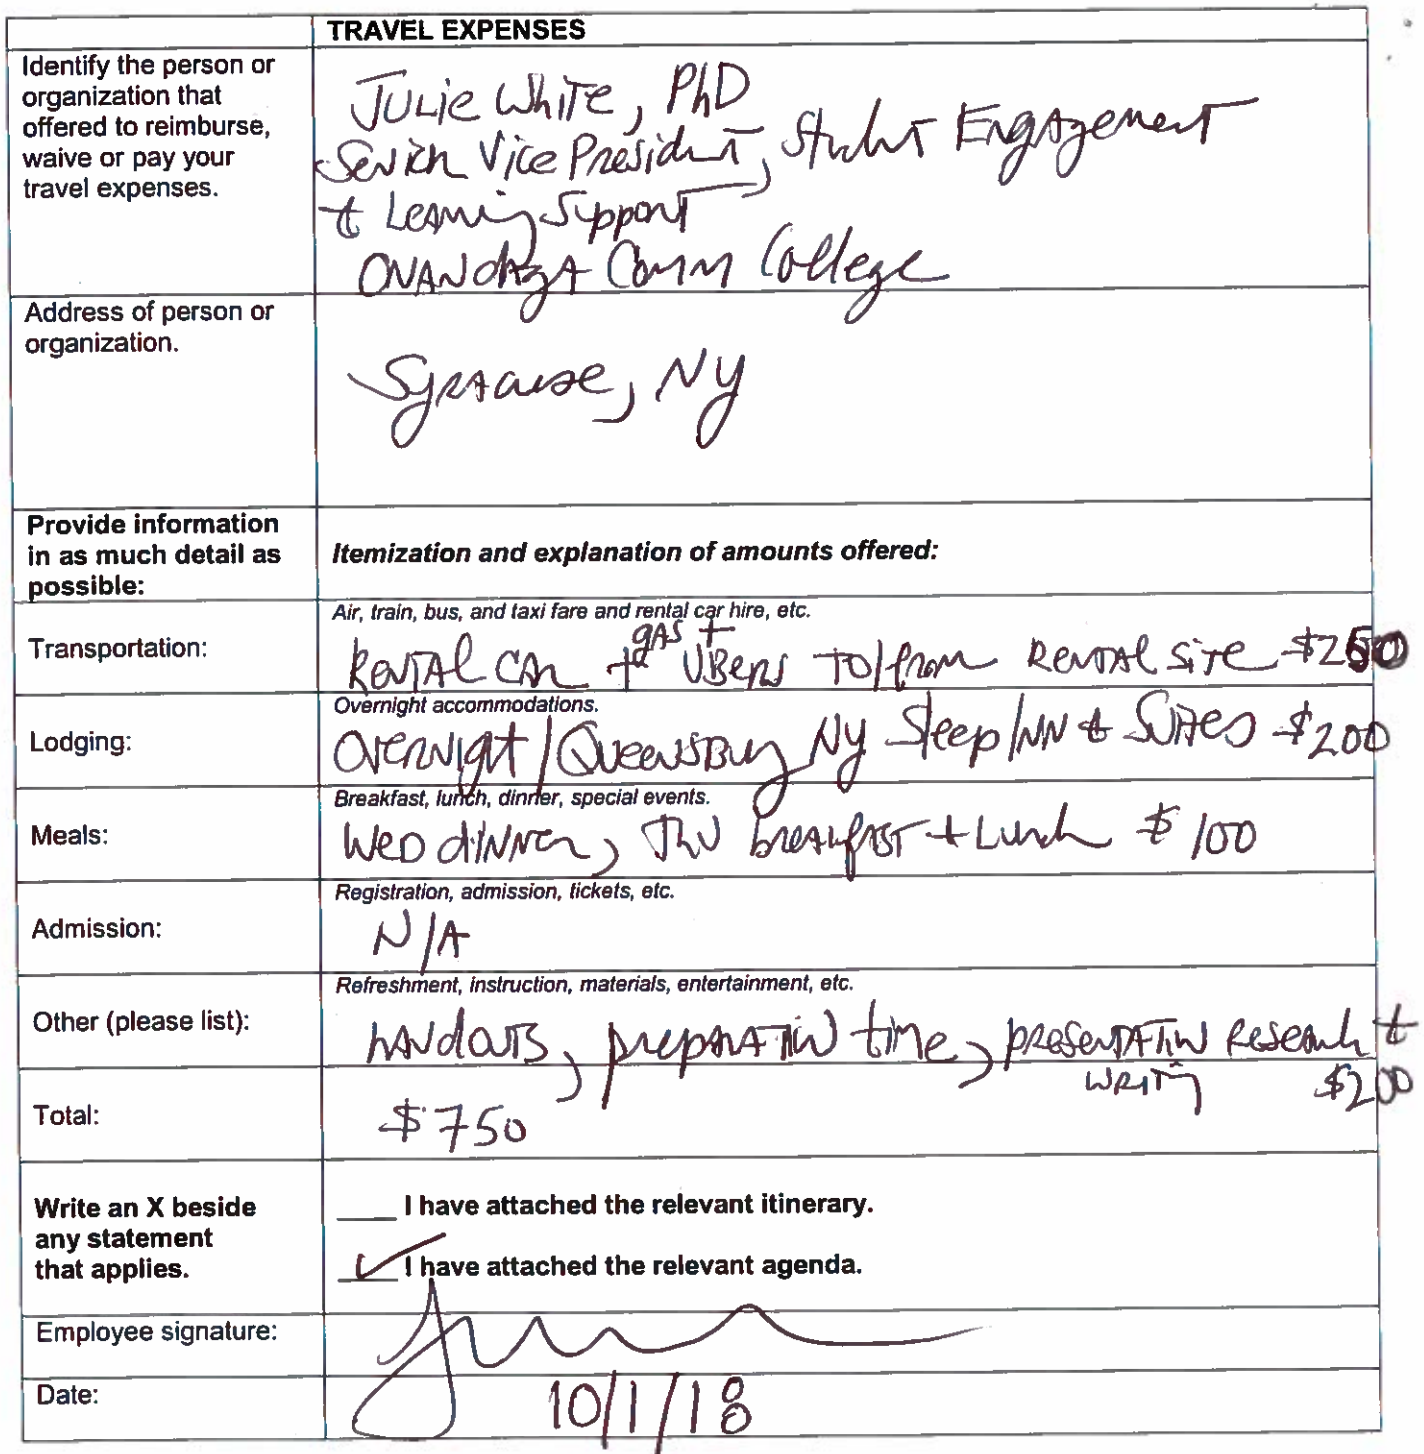 TRAVEL EXPENSES
Identify the person or
organization that
offered to reimburse,
waive or pay your
travel expenses.
Julie White, PhD
Senior Vice President, Student Engagement
& Learning Support
Onandaga Comm College
Address of person or
organization.
Syracuse, NY
Provide information
in as much detail as
possible:
Itemization and explanation of amounts offered:
Transportation:
Air, train, bus, and taxi fare and rental car hire, etc.
Rental car + gas + Ubers to/from rental site $250
Lodging:
Overnight accommodations.
Overnight/Queensbury NY Sleep Inn & Suites $200
Meals:
Breakfast, lunch, dinner, special events.
Wed dinner, Thu breakfast + Lunch $100
Admission:
Registration, admission, tickets, etc.
N/A
Other (please list):
Refreshment, instruction, materials, entertainment, etc.
handouts, preparation time, presentation research &
writing $200
Total:
$750
Write an X beside
any statement
that applies.
____ I have attached the relevant itinerary.
✓ I have attached the relevant agenda.
Employee signature:
Date:
10/1/18